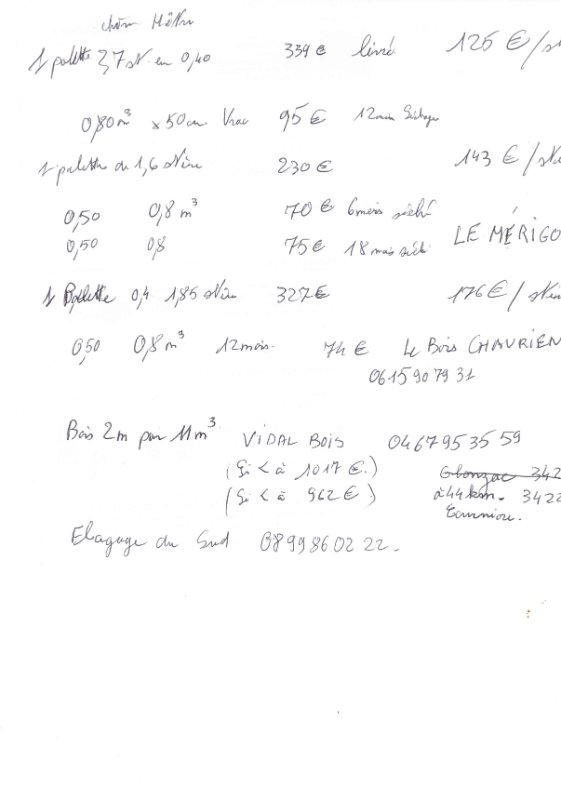 chêne Hêtre
1 palette 2,7 st. en 0,40 339 € livré 125 € / st
0,80 m³ x 50 cm Vrac 95 € 12 mois Séchage
1 palette de 1,6 stère 230 € 143 € / stè
0,50 0,8 m³ 70 € 6 mois séché
0,50 0,8 75 € 18 mois séch LE MÉRIGO
1 Palette 0,4 1,85 stère 327 € 176 € / stè
0,50 0,8 m³ 12 mois. 74 € Le Bois CHAURIEN
06 15 90 79 31
Bois 2m par 11 m³ VIDAL BOIS 04 67 95 35 59
(Si < à 1017 €.) Olonzac 342
(Si < à 962 €) à 44 km. 3422
Elagage du Sud 08 99 86 02 22.